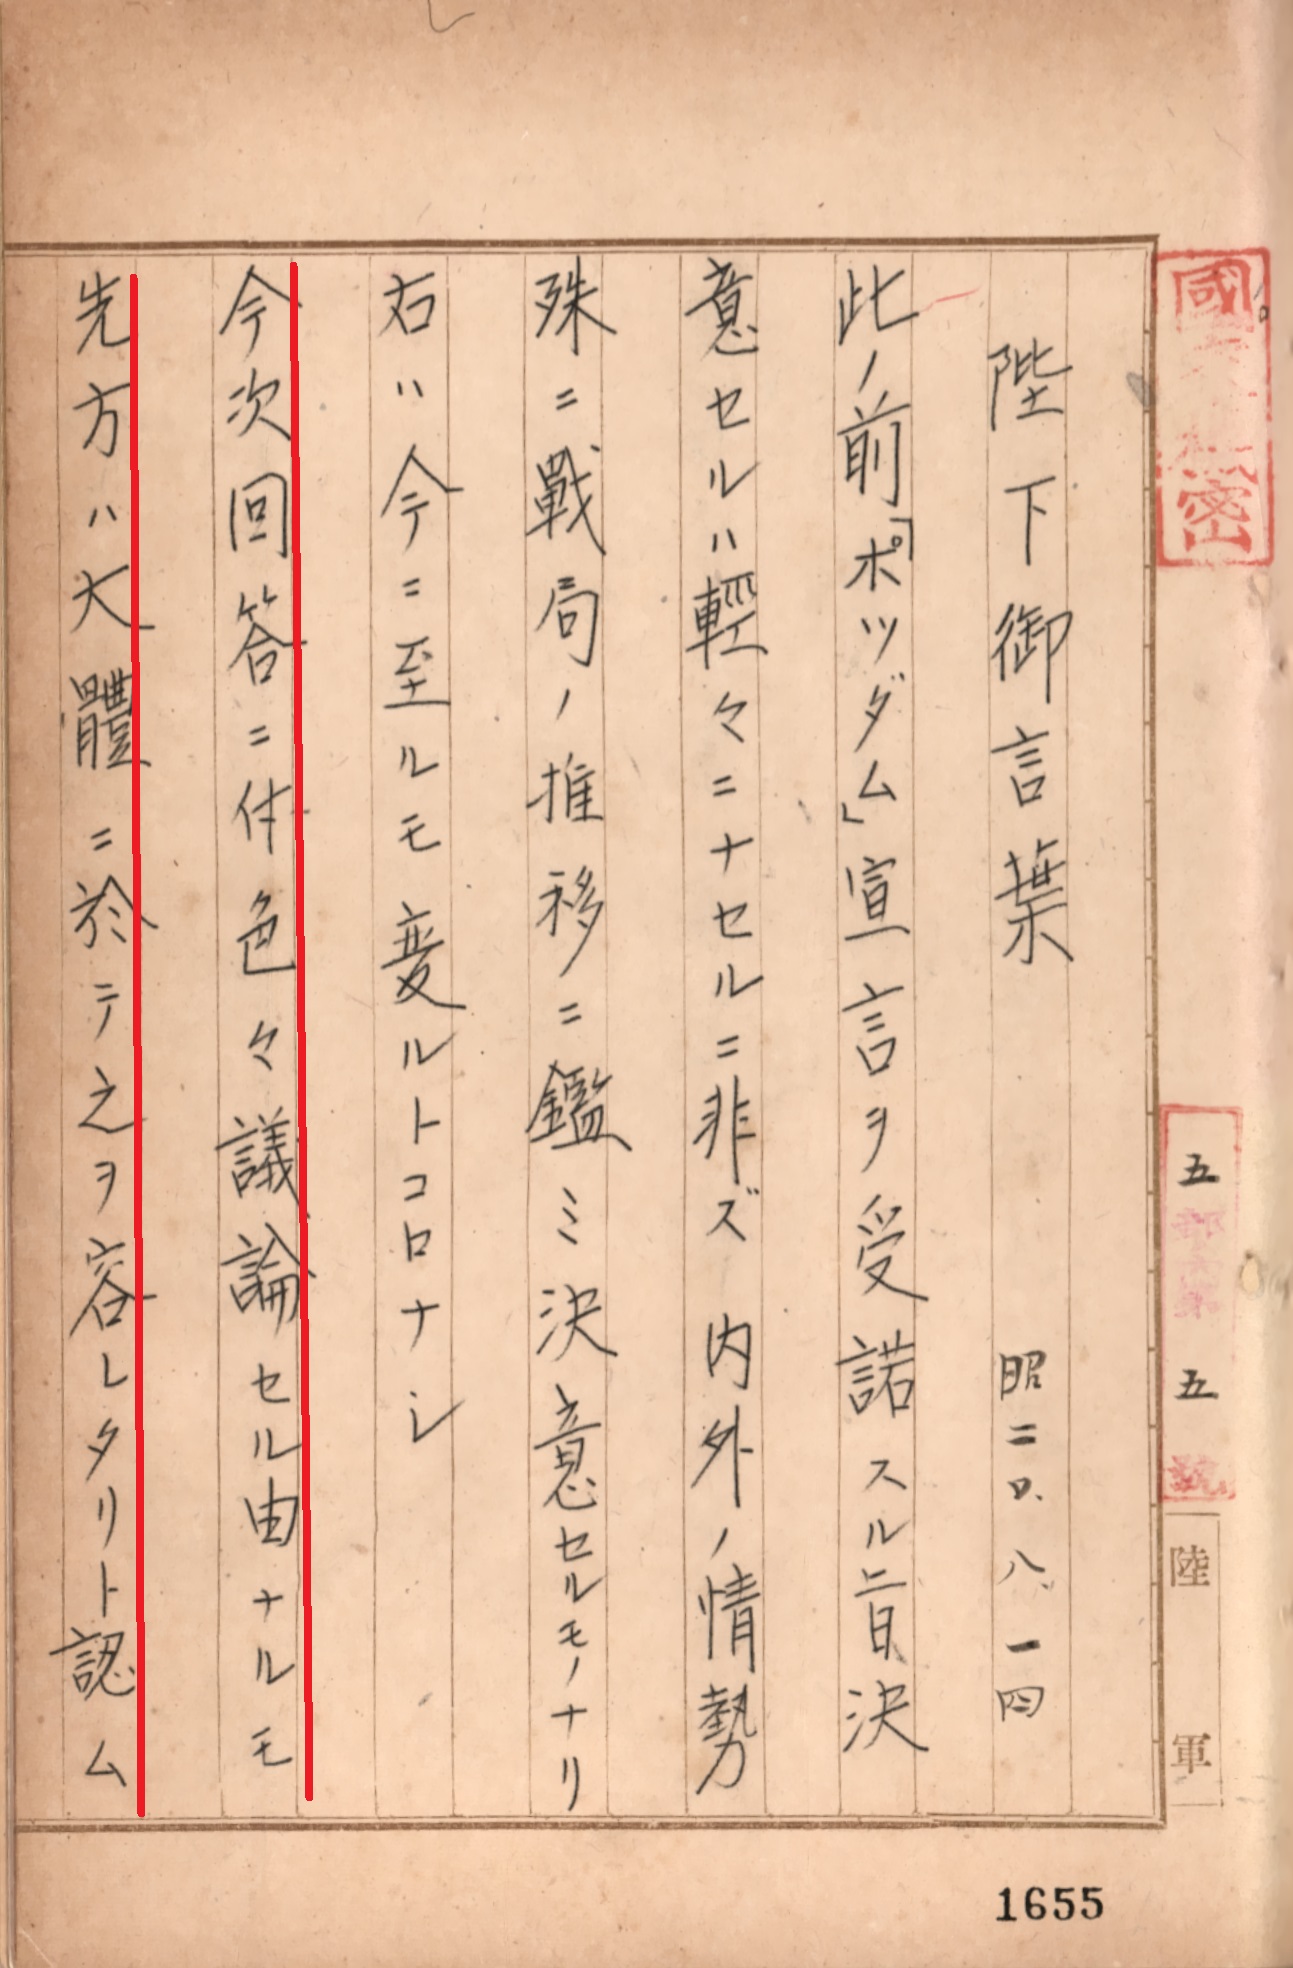 陛下御言葉 昭二〇、八、一四
此ノ前「ポツダム」宣言ヲ受諾スル旨決
意セルハ輕々ニナセルニ非ズ 内外ノ情勢
殊ニ戰局ノ推移ニ鑑ミ決意セルモノナリ
右ハ今テニ至ルモ変ルトコロナシ
今次回答ニ付色々議論セル由ナルモ
先方ハ大體ニ於テ之ヲ容レタリト認ム
國
密
五
五
號
陸軍
1655